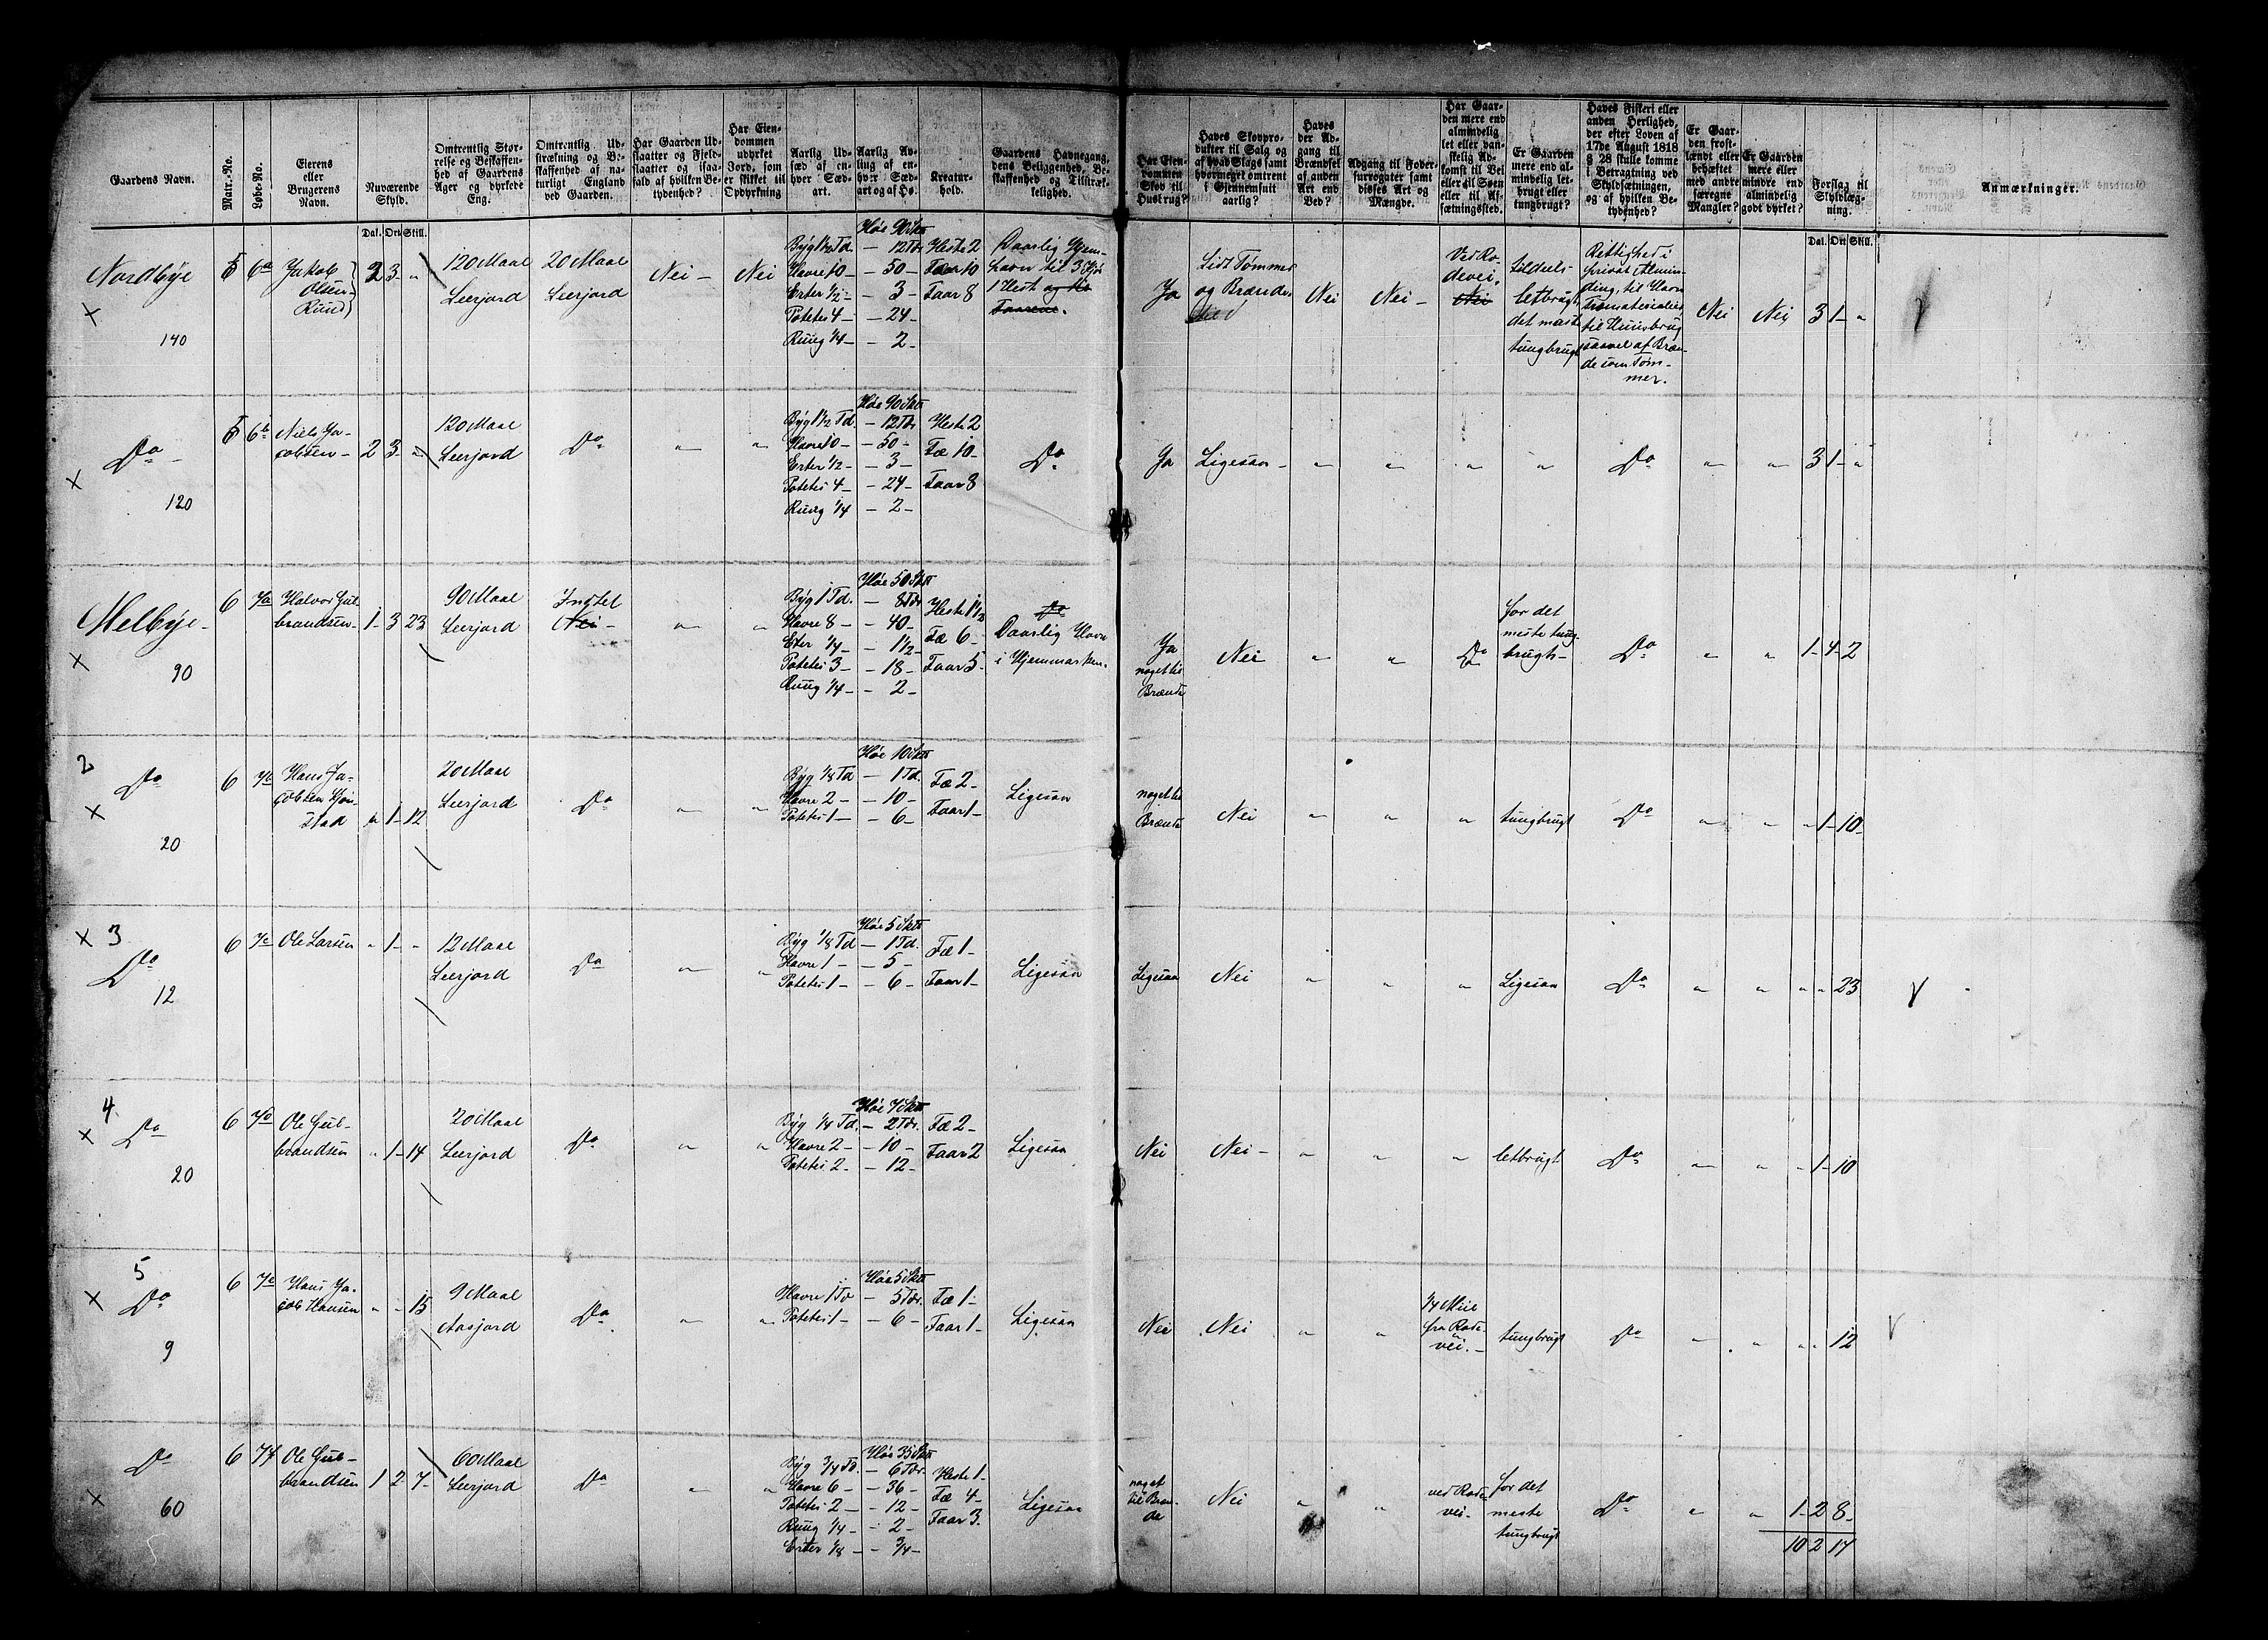 Gaardens Navn.
Matr.-No.
Løbe-No.
Eierens
eller
Brugerens
Navn.
Nuværende
Skyld.
Omtrentlig Stør-
relse og Beskaffen-
hed af Gaardens
Ager og dyrkede
Eng.
Omtrentlig Ud-
strækning og Be-
skaffenhed af na-
turligt England
ved Gaarden.
Har Gaarden Ud-
slaatter og Fjeld-
slaatter og isaa-
fald af hvilken Be-
tydenhed?
Har Eien-
dommen
udyrket
Jord, som
er skikket til
Opdyrkning
Aarlig Ud-
sæd af en-
hver Sæd-
art.
Aarlig Av-
ling af en-
hver Sæd-
art og af Hø.
Kreatur-
hold.
Gaardens Havnegang,
dens Beliggenhed, Be-
skaffenhed og Tilstræk-
kelighed.
Har Eien-
dommen
Skov til
Husbrug?
Haves Skovpro-
dukter til Salg og
af hvad Slags samt
hvormeget omtrent
i Gjennemsnit
aarlig?
Haves
der Ad-
gang til
Brændsel
af anden
Art end
Ved?
Adgang til Foder-
surrogater samt
disses Art og
Mængde.
Har Gaar-
den mere end
almindelig
let eller van-
skelig Ad-
komst til Vei
eller til Søen
eller til Af-
sætningssted.
Er Gaarden
mere end al-
mindelig let-
brugt eller
tungbrugt?
Haves Fiskeri eller
anden Herlighed,
der efter Loven af
17de August 1818
§ 28 skulle komme
i Betragtning ved
Skyldsætningen,
og af hvilken Be-
tydenhed?
Er Gaar-
den frost-
lændt eller
behæftet
med andre
særegne
Mangler?
Er Gaarden
mere eller
mindre end
almindelig
godt dyrket?
Forslag til
Skyldlæg-
ning.
Anmærkninger.
Dal. Ort Skill.
Dal. Ort Skill.
Nordbye
140
5 6a Jakob
Olsen
Ruud
2 3 "
120 Maal
Leerjord
20 Maal
Leerjord
Nei -
Nei
Høe 90 Sk℔
Byg 1½ Td. - 12 Tdr
Havre 10 - 50 -
Erter ½ - 3 -
Potetes 4 - 24 -
Ruug ¼ - 2 -
Heste 2
Faar 8
Daarlig Hjem-
havn til 3 Kjør
1 Hest og
Faarene.
Ja
Lidt Tømmer
og Brænde
Nei
Nei -
Ved Ro-
devei.
Nei
tildeels
letbrugt
det meste
tungbrugt
Rettighed i
privat Almin-
ding, til Havn
til Huusbrug
saavel af Bræn-
de som Tøm-
mer.
Nei
Nei
3 1 - "
Do
120
5 6b Niels Ja-
cobsen -
2 3 "
120 Maal
Leerjord
Do
"
"
Høe 90 Sk℔
Byg 1½ Td. - 12 Tdr
Havre 10 - 50 -
Erter ½ - 3 -
Potetes 4 - 24 -
Ruug ¼ - 2 -
Heste 2
Fæ 10 -
Faar 8
Do
Ja
Ligesaa -
"
"
"
"
Do
"
"
3 1 - "
Melbye -
90
6 7a Halvor Gul-
brandsen -
1 - 3 23
90 Maal
Leerjord
Indtet
Nei -
"
"
Høe 50 Sk℔
Byg 1 Td. - 8 Tdr
Havre 8 - 40 -
Erter ¼ - 1½ -
Potetes 3 - 18 -
Ruug ¼ - 2 -
Heste 1½
Fæ 6 -
Faar 5 -
Do
Daarlig Havn
i Hjemmarken.
Ja
noget til
Brænde
Nei
"
"
Do
for det
meste tung-
brugt -
Do
"
"
1 - 4 - 2
2
Do
20
6 7b Hans Ja-
cobsen
" 1 - 12
20 Maal
Leerjord
Do
"
"
Høe 10 Sk℔
Byg ⅛ Td - 1 Td.
Havre 2 - 10 -
Potetes 1 - 6 -
Fæ 2 -
Faar 1 -
Ligesaa
noget til
Brænde
Nei
"
"
"
tungbrugt
Do
"
"
" 1 - 10 -
3
Do
12
6 7c Ole Larsen
" 1 - "
12 Maal
Leerjord
Do
"
"
Høe 5 Sk℔
Byg ⅛ Td - 1 Td.
Havre 1 - 5 -
Potetes 1 - 6 -
Fæ 1 -
Faar 1 -
Ligesaa
Ligesaa
Nei
"
"
"
Ligesaa
Do
"
"
" " 23
4
Do
20
6 7d Ole Gul-
brandsen
" 1 - 14
20 Maal
Leerjord
Do
"
"
Høe 7 Sk℔
Byg ¼ Td. - 2 Tdr.
Havre 2 - 10 -
Potetes 2 - 12 -
Fæ 2 -
Faar 2
Ligesaa
Nei
Nei -
"
"
"
letbrugt
Do
"
"
" 1 - 10
5
Do
9
6 7e Hans Ja-
cob Hansen
" " 15
9 Maal
Aasjord
Do
"
"
Høe 5 Sk℔
Havre 1 Td - 5 Tdr.
Potetes 1 - 6 -
Fæ 1 -
Faar 1 -
Ligesaa
Nei
Nei
"
"
¼ Miil
fra Rode-
vei. -
tungbrugt
Do
"
"
" " 12
Do
60
6 7f Ole Gul-
brandsen
1 2 7 -
60 Maal
Leerjord
Do
"
"
Høe 35 Sk℔
Byg ¾ Td. - 6 Tdr.
Havre 6 - 36 -
Potetes 2 - 12 -
Ruug ¼ - 2 -
Erter ⅛ - ¾ -
Heste 1 -
Fæ 4 -
Faar 3.
Ligesaa
noget
til Bræn-
de
Nei
"
"
ved Rode-
vei -
for det
meste
tungbrugt
Do
"
"
1 - 2 8 -
10 2 17